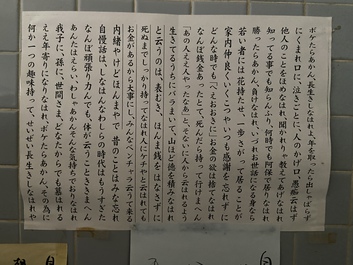 ボケたらあかん、長生きしなはれ人年を取ったら出しゃばらず
にくまれ口に、泣きごとに人のかげ口、悪口云はず
他人のことをほめなはれ、聞かれりゃ教えてあげなはれ
知ってる事でも知らんふり、何時でも阿保で居なはれ
勝ったらあかん、負けなはれ、いづれお世話になる身なら
若い者には花持たせ、一歩さがって居ることが
家内仲良くいくこつや、いつも感謝を忘れずに
どんな時でも「へえおおきに」お金の欲は捨てなはれ
なんぼ銭金あったとて、死んだら持って行けまへん
「あの人ええ人やったなあ」と、そないに人から云はれるよう
生きてるうちにバラまいて、山ほど徳を積みなはれ
と云うのは、表むき、ほんま銭をはなさずに
死ぬまでしっかり持ってなはれ人にケチやと云はれても
お金があるから大事にし、みんなベンチャラ云うて来る
内緒やけどほんまやで 昔のことはみな忘れ
自慢話は、しなはんなわしらの時代はもうすぎた
なんぼ頑張り力んでも、体が云うこときまへん
あんたはえらい、わしゃあかん、そんな気持ちでおりなはれ
我子に、孫に、世間さま、どなたからでも慕はれる
ええ年寄りになりなはれ、ボケたらあかん、その為に
何か一つの趣味持って、せいぜい長生きしなはれや